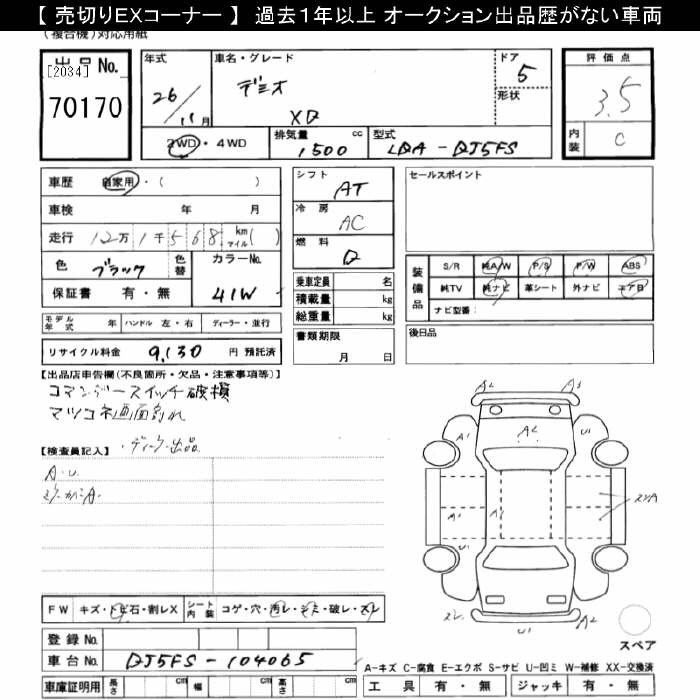 【 売切りEXコーナー 】 過去１年以上 オークション出品歴がない車両
(複合機)対応用紙
出品No.
[2034]
70170
年式
26/11月
車名・グレード
デミオ
XD
ドア
5
形状
評価点
3.5
内装
C
2WD・4WD
排気量 1500 cc
型式 LDA-DJ5FS
車歴 自家用・( )
車検 年 月
走行 12万1千568 km マイル( )
色 ブラック 色替
カラーNo. 41W
保証書 有・無
モデル年式 年 ハンドル 左・右 ディーラー・並行
リサイクル料金 9,130 円 預託済
シフト AT
冷房 AC
燃料 D
乗車定員 名
積載量 kg
総重量 kg
書類期限
月 日
セールスポイント
装備品
S/R 純A/W P/S P/W ABS
純TV 純ナビ 革シート 外ナビ エアB
ナビ型番:
後日品
【出品店申告欄(不良箇所・欠品・注意事項等)】
コマンダースイッチ破損
マツコネ画面割れ
【検査員記入】
・ディーラー出品
A・U
FW キズ・トビ石・割レX
シート内装 コゲ・穴・汚レ・シミ・破レ・スレ
登録No.
車台No. DJ5FS-104065
車庫証明用 長さ cm 幅 cm 高さ cm
A2
A2
A1
A2
U1
A1
A1
U1
U1
A2
スペア
A-キズ C-腐食 E-エクボ S-サビ U-凹ミ W-補修 XX-交換済
工具 有・無 ジャッキ 有・無